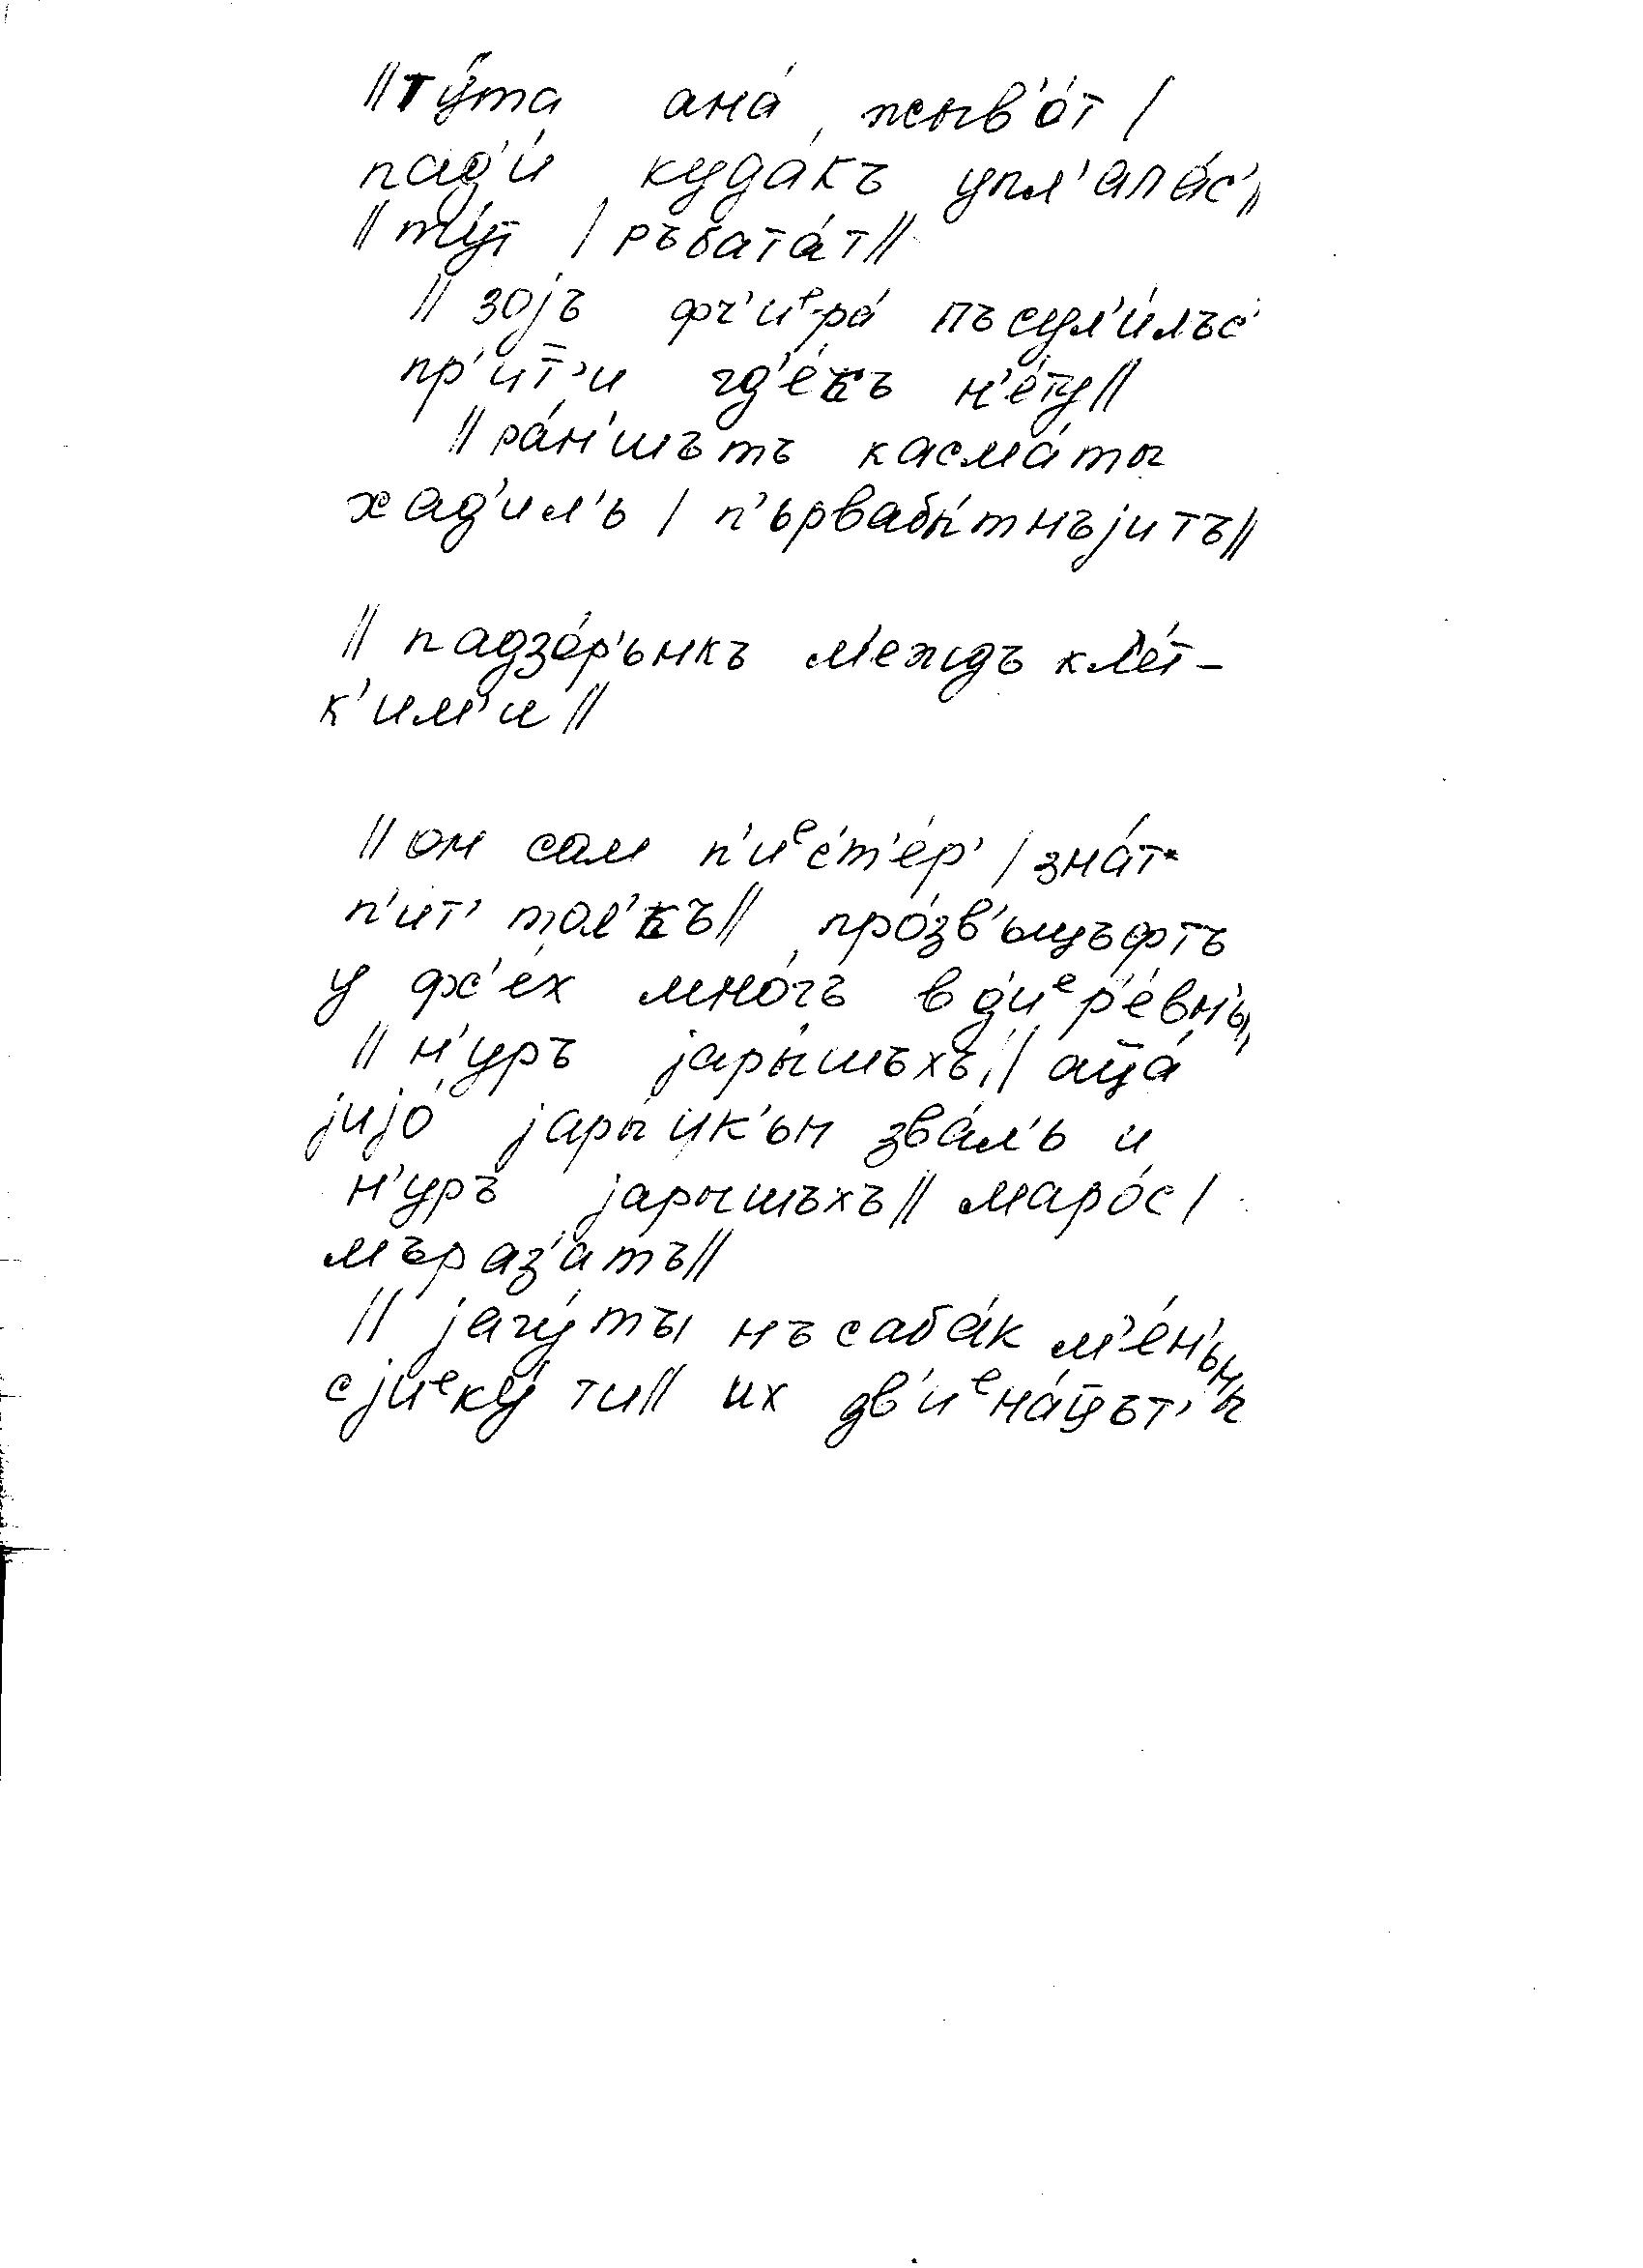 ||ту́та ана́ жыв'о́т /
пад'и́ куда́къ упл'ала́с'||
|| ту́т / ръбата́т||
|| зоjъ фч'иᵉра́ пъсул'и́лъс'
пр'ит̅'и гд'е́къ н'е́ту||
|| ра́н'шътъ касма́ты
хад'ил'ь / п'ьрвабы́тнъjитъ||
|| падзо́р'ьнкъ м'еждъ кл'е́т-
к'им'и ||
|| он сам п'иᵉс'т'е́р' / зна́т'
п'ит' тол'къ|| про́зв'ьщъфтъ
у фс'е́х мно́гъ в д'иᵉр'е́вн'ь||
|| н'уръ jары́шъхъ|| аца́
jиjо́ jары́цк'ьн зва́л'ь и
н'уръ jарышъхъ|| маро́с /
мъраз'атъ||
|| jагу́ты нъ саба́к м'е́н'ьны
сjиᵉку́ти|| их дв'иᵉна́цът'